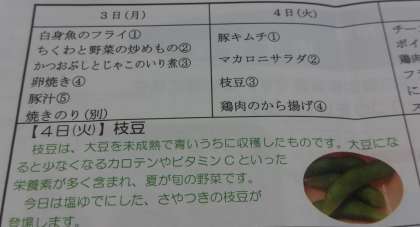 3日(月)
白身魚のフライ①
ちくわと野菜の炒めもの②
かつおぶしとじゃこのいり煮③
卵焼き④
豚汁⑤
焼きのり(別)
4日(火)
豚キムチ①
マカロニサラダ②
枝豆③
鶏肉のから揚げ④
チー
ポイ
フラ
鶏肉
【4日(火)】枝豆
枝豆は、大豆を未成熟で青いうちに収穫したものです。大豆にな
ると少なくなるカロテンやビタミンCといった
栄養素が多く含まれ、夏が旬の野菜です。
今日は塩ゆでにした、さやつきの枝豆が
登場します。